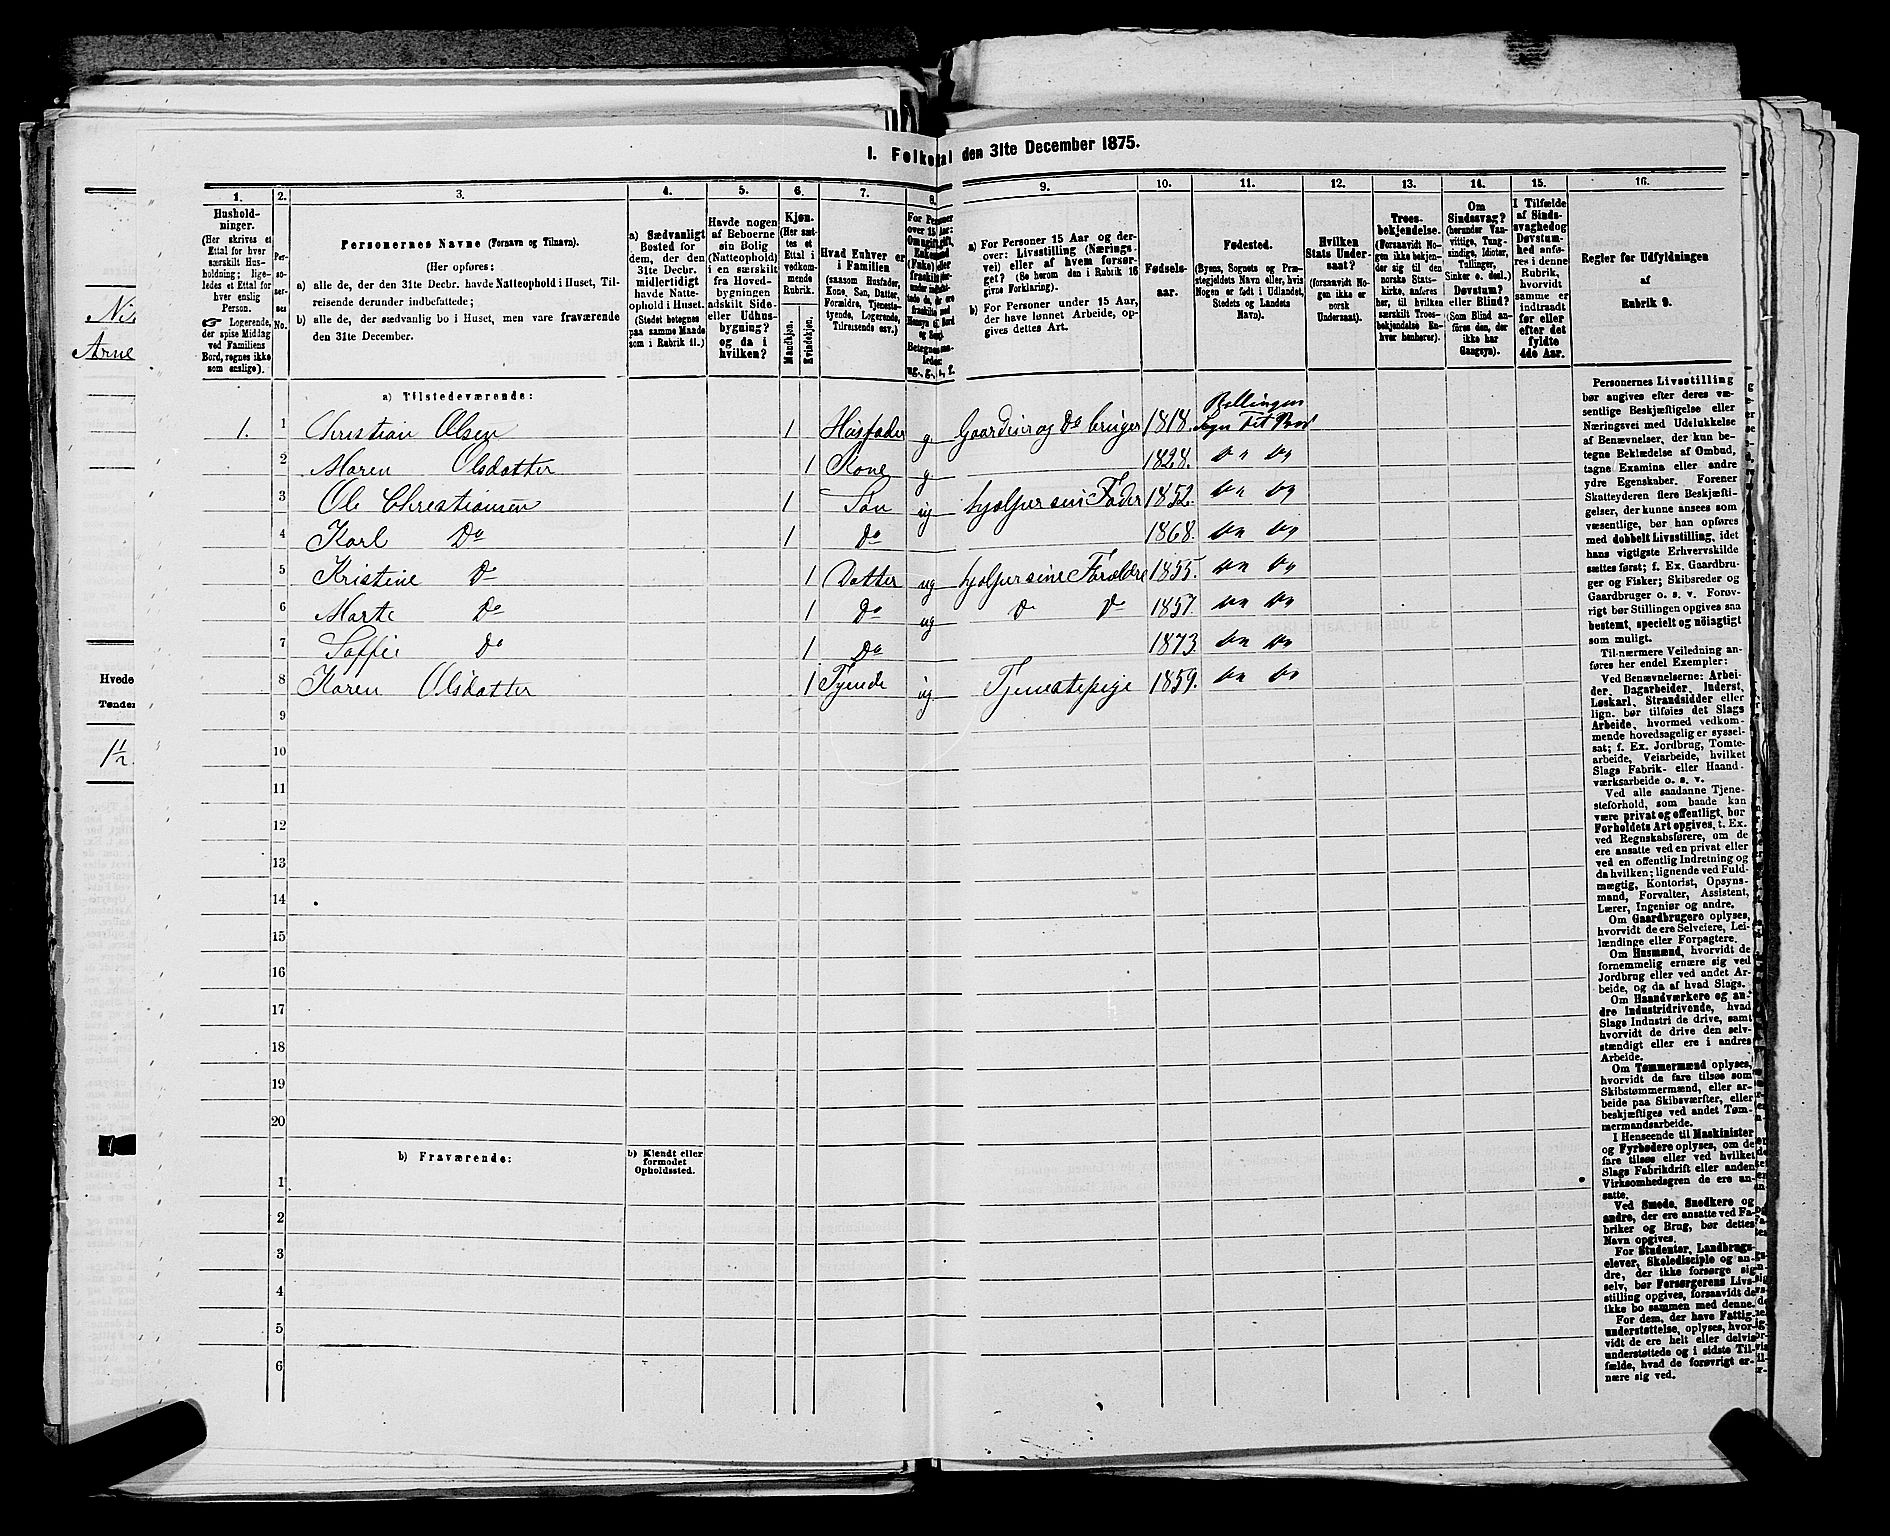 I. Folketal den 31te December 1875.
1. 2. 3. 4. 5. 6. 7. 8. 9. 10. 11. 12. 13. 14. 15. 16.
Nils
Arne
Hvede
Tønder
1½
Hushold-
ninger.
(Her skrives et
Ettal for hver
særskilt Hus-
holdning; lige-
ledes et Ettal for
hver enslig
Person.
☞ Logerende,
der spise Middag
ved Familiens
Bord, regnes ikke
som enslige).
Per-
so-
ner-
nes
No.
Personernes Navne (Fornavn og Tilnavn).
(Her opføres:
a) alle de, der den 31te Decbr. havde Natteophold i Huset, Til-
reisende derunder indbefattede;
b) alle de, der sædvanlig bo i Huset, men vare fraværende
den 31te December.
a) Sædvanligt
Bosted for
dem, der den
31te Decbr.
midlertidigt
havde Natte-
ophold i Huset.
(Stedet betegnes
paa samme Maade
som i Rubrik 11.)
Havde nogen
af Beboerne
sin Bolig
(Natteophold)
i en særskilt
fra Hoved-
bygningen
adskilt Side-
eller Udhus-
bygning?
og da i
hvilken?
Kjøn.
(Her sæt-
tes et
Ettal i
vedkom-
mende
Rubrik.
Mandkjøn.
Kvindekjøn.
Hvad Enhver er
i Familien
(saasom Husfader,
Kone, Søn, Datter,
Forældre, Tjeneste-
tyende, Logerende,
Tilreisende osv.)
For Personer
over 15 Aar:
ug., g., e., f.
a) For Personer 15 Aar og der-
over: Livsstilling (Nærings-
vei) eller af hvem forsør-
get? (Se herom den i Rubrik 16
givne Forklaring).
b) For Personer under 15 Aar,
der have lønnet Arbeide, op-
gives dettes Art.
Fødsels-
aar.
Fødested.
(Byens, Sognets og Præ-
stegjeldets Navn eller, hvis
Nogen er født i Udlandet,
Stedets og Landets
Navn).
Hvilken
Stats Under-
saat?
(forsaavidt No-
gen ikke er
norsk
Undersaat).
Troes-
bekjendelse.
(Forsaavidt No-
gen ikke bekjen-
der sig til den
norske Stats-
kirke, anføres
her, til hvilken
særskilt Troes-
bekjendelse En-
hver henhører).
Om
Sindssvag?
(herunder Van-
vittige, Tung-
sindige, Idioter,
Tullinger,
Sinker o. desl.)
Døvstum?
eller Blind?
(Som Blind an-
føres den, der
ikke har
Gangsyn).
I Tilfælde
af Sinds-
svaghed og
Døvstum-
hed anfø-
res i denne
Rubrik,
hvorvidt
samme er
indtraadt
før eller
efter det
fyldte
4de Aar.
Regler for Udfyldningen
af
Rubrik 9.
a) Tilstedeværende:
1. 1 Christian Olsen 1 Husfader g Gaardeier og Do bruger 1818.
2 Maren Olsdatter 1 Kone g 1828. Do Do
3 Ole Christiansen 1 Søn ug hjelper sin Fader 1852. Do Do
4 Karl Do 1 Do 1868. Do Do
5 Kristine Do 1 Datter ug hjelper sine Forældre 1855. Do Do
6 Marte Do 1 Do ug Do Do 1857. Do Do
7 Soffie Do 1 Do 1873. Do Do
8 Karen Olsdatter 1 Tyende ug Tjenestepige 1859. Do Do
9
10
11
12
13
14
15
16
17
18
19
20
b) Fraværende:
b) Kjendt eller
formodet
Opholdssted.
1
2
3
4
5
6
Personernes Livsstilling
bør angives efter deres væ-
sentlige Beskjæftigelse eller
Næringsvei med Udelukkelse
af Benævnelser, der kun be-
tegne Beklædelse af Ombud,
tagne Examina eller andre
ydre Egenskaber. Forener
Skatteyderen flere Beskjæfti-
gelser, der kunne ansees som
væsentlige, bør han opføres
med dobbelt Livsstilling, idet
hans vigtigste Erhvervskilde
sættes først; f. Ex. Gaardbru-
ger og Fisker; Skibsreder og
Gaardbruger o. s. v. Forøv-
rigt bør Stillingen opgives saa
bestemt, specielt og nöiagtigt
som muligt.
Til nærmere Veiledning an-
føres her endel Exempler:
Ved Benævnelserne: Arbei-
der, Dagarbeider, Inderst,
Løskarl, Strandsidder eller
lign. bør tilføies det Slags
Arbeide, hvormed vedkom-
mende hovedsagelig er syssel-
sat; f. Ex. Jordbrug, Tomte-
arbeide, Veiarbeide, hvilket
Slags Fabrik- eller Haand-
værksarbeide o. s. v.
Ved alle saadanne Tjene-
steforhold, som baade kan
være privat og offentligt, bør
Forholdets Art opgives, t. Ex.
ved Regnskabsførere, om de
ere ansatte ved en privat eller
ved en offentlig Indretning og
da hvilken; lignende ved Fuld-
mægtig, Kontorist, Opsyns-
mand, Forvalter, Assistent,
Lærer, Ingeniør og andre.
Om Gaardbrugere oplyses,
hvorvidt de ere Selveiere, Lei-
lændinge eller Forpagtere.
Om Husmænd, hvorvidt de
fornemmelig ernære sig ved
Jordbrug eller ved andet Ar-
beide, og da af hvad Slags.
Om Haandværkere og an-
dre Industridrivende, hvad
Slags Industri de drive, samt
hvorvidt de drive den selv-
stændigt eller ere i andres
Arbeide.
Om Tømmermænd oplyses,
hvorvidt de fare tilsøs som
Skibstømmermænd, eller ar-
beide paa Skibsværfter, eller
beskjæftiges ved andet Tøm-
mermandsarbeide.
I Henseende til Maskinister
og Fyrbødere oplyses, om de
fare tilsøs eller ved hvilket
Slags Fabrikdrift eller anden
Virksomhedsgren de ere an-
satte.
Ved Smede, Snedkere og
andre, der ere ansatte ved Fa-
briker og Brug, bør dettes
Navn opgives.
For Studenter, Landbrugs-
elever, Skoledisciple og an-
dre, der ikke forsørge sig
selv, bør Forsørgerens Livs-
stilling opgives, forsaavidt de
ikke bo sammen med denne.
For dem, der have Fattig-
understøttelse, oplyses, hvor-
vidt de ere helt eller delvis
understøttede og i sidste Til-
fælde, hvad de forøvrigt er-
nære sig ved.